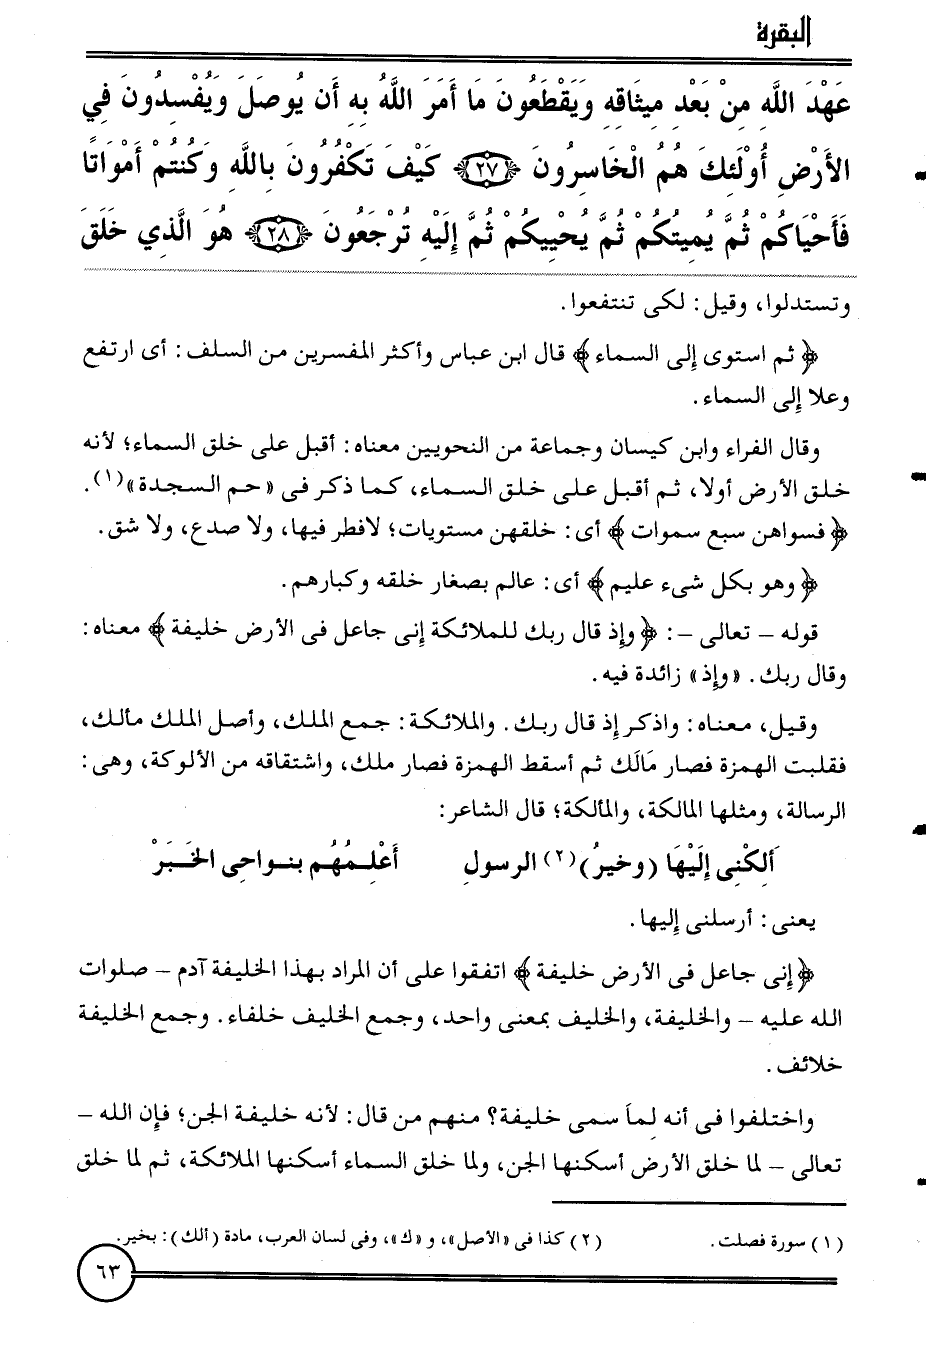 البقرة
عَهْدَ اللَّهِ مِنْ بَعْدِ مِيثَاقِهِ وَيَقْطَعُونَ مَا أَمَرَ اللَّهُ بِهِ أَن يُوصَلَ وَيُفْسِدُونَ فِي
الأَرْضِ أُوْلَئِكَ هُمُ الْخَاسِرُونَ ﴿٢٧﴾ كَيْفَ تَكْفُرُونَ بِاللَّهِ وَكُنتُمْ أَمْوَاتًا
فَأَحْيَاكُمْ ثُمَّ يُمِيتُكُمْ ثُمَّ يُحْيِيكُمْ ثُمَّ إِلَيْهِ تُرْجَعُونَ ﴿٢٨﴾ هُوَ الَّذِي خَلَقَ
وتستدلوا، وقيل: لكى تنتفعوا.
﴿ ثم استوى إلى السماء ﴾ قال ابن عباس وأكثر المفسرين من السلف: أى ارتفع
وعلا إلى السماء.
وقال الفراء وابن كيسان وجماعة من النحويين معناه: أقبل على خلق السماء؛ لأنه
خلق الأرض أولا، ثم أقبل على خلق السماء، كما ذكر فى «حم السجدة»(١).
﴿ فسواهن سبع سموات ﴾ أى: خلقهن مستويات؛ لافطر فيها، ولا صدع، ولا شق.
﴿ وهو بكل شىء عليم ﴾ أى: عالم بصغار خلقه وكبارهم.
قوله – تعالى –: ﴿ وإذ قال ربك للملائكة إنى جاعل فى الأرض خليفة ﴾ معناه:
وقال ربك. «وإذ» زائدة فيه.
وقيل، معناه: واذكر إذ قال ربك. والملائكة: جمع الملك، وأصل الملك مألك،
فقلبت الهمزة فصار مَالَك ثم أسقط الهمزة فصار ملك، واشتقاقه من الألوكة، وهى:
الرسالة، ومثلها المالكة، والمألكة؛ قال الشاعر:
أَلِكْنِى إِلَيْهَا (وخيرُ)(٢) الرسولِ أَعْلِمُهُم بنواحِى الخَبَرْ
يعنى: أرسلنى إليها.
﴿ إنى جاعل فى الأرض خليفة ﴾ اتفقوا على أن المراد بهذا الخليفة آدم – صلوات
الله عليه – والخليفة، والخليف بمعنى واحد، وجمع الخليف خلفاء. وجمع الخليفة
خلائف.
واختلفوا فى أنه لِمَا سمى خليفة؟ منهم من قال: لأنه خليفة الجن؛ فإن الله –
تعالى – لما خلق الأرض أسكنها الجن، ولما خلق السماء أسكنها الملائكة، ثم لما خلق
(١) سورة فصلت. (٢) كذا فى «الأصل»، و«ك»، وفى لسان العرب، مادة (ألك): بخير.
٦٣